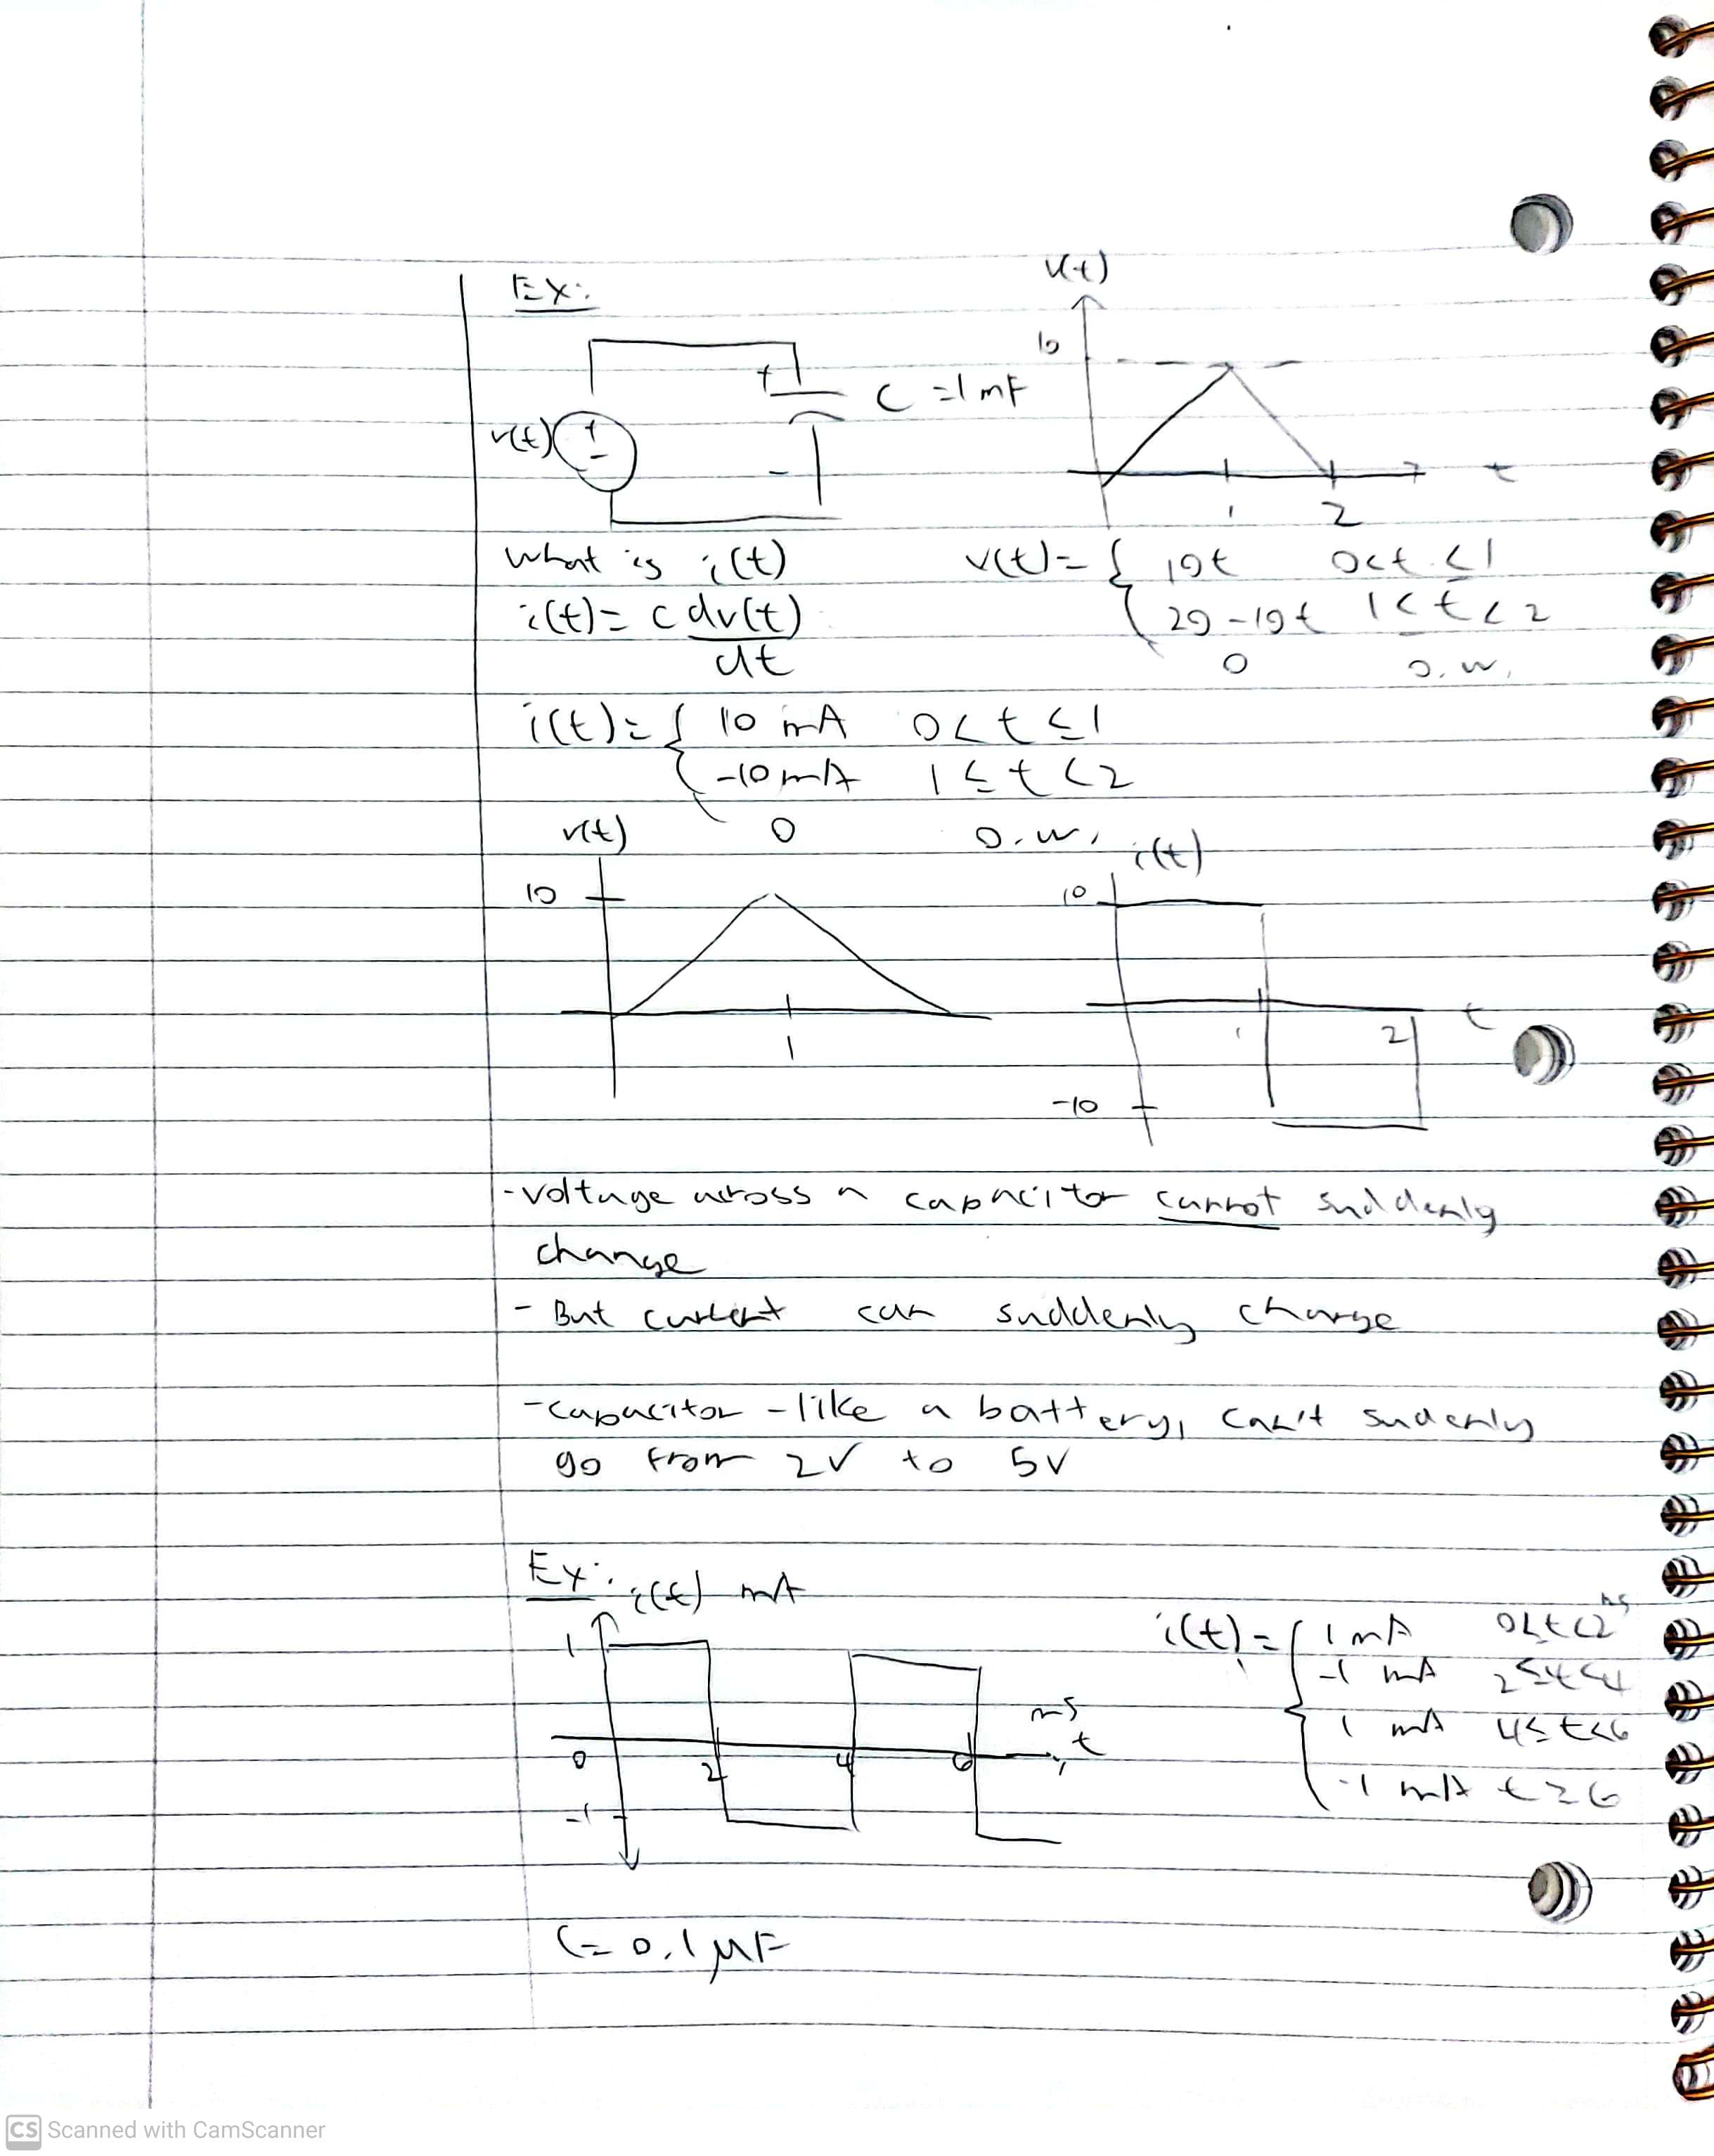 Ex:
v(t)
10
+
C = 1 mF
v(t)
+
-
-
t
1 2
what is i(t)
v(t) = { 10t 0<t≤1
i(t) = c dv(t)
dt
20-10t 1≤t<2
0 o.w.
i(t) = { 10 mA 0<t≤1
-10 mA 1≤t<2
0 o.w.
v(t)
i(t)
10
10
t
1
1
2
-10
-voltage across a capacitor cannot suddenly
change
- But current can suddenly change
-capacitor - like a battery, can't sudenly
go from 2V to 5V
Ex: i(t) mA
1
i(t) = { 1 mA 0≤t<2 ms
-1 mA 2≤t<4
1 mA 4≤t<6
-1 mA t≥6
ms
t
0 2 4 6
-1
C = 0.1 μF
CS Scanned with CamScanner